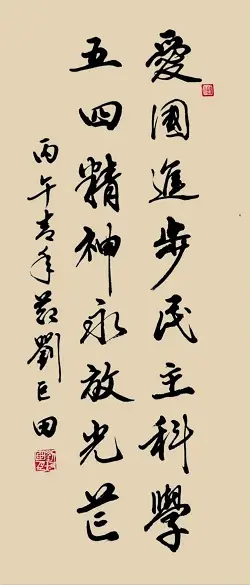 愛國進步民主科學
五四精神永放光芒
丙午青年節劉巨田